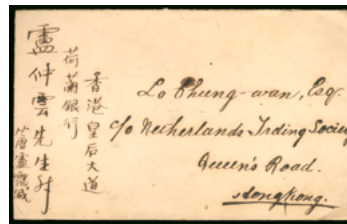 香港皇后大道
荷蘭銀行
盧仲雲先生
Lo Chung-wan, Esq.
c/o Netherlands Trding Society
Queen's Road.
Hongkong.